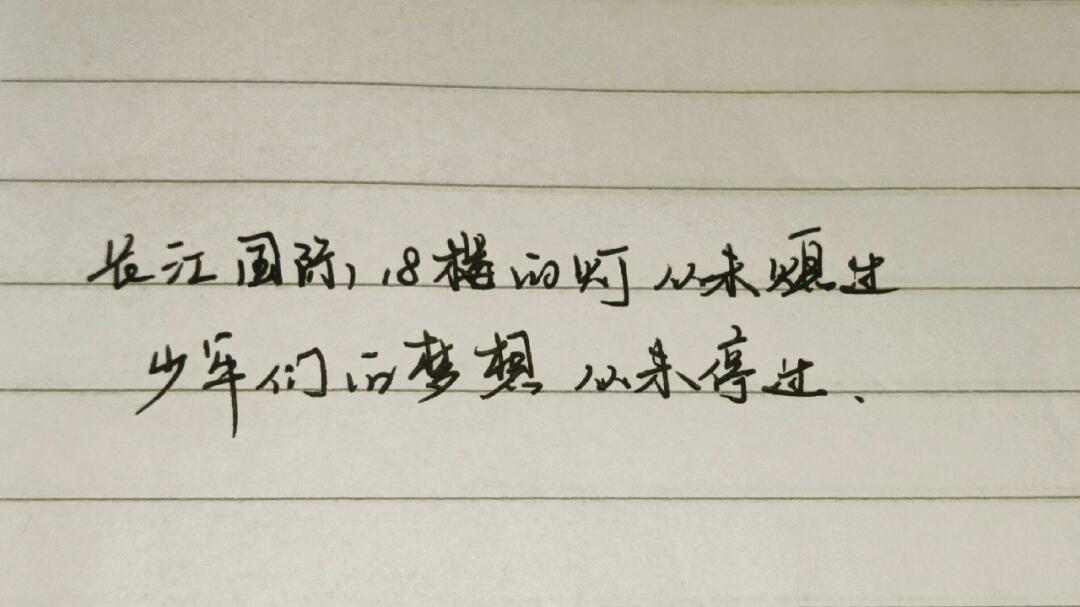 长江国际,18楼的灯从未熄过
少年们的梦想从未停过.